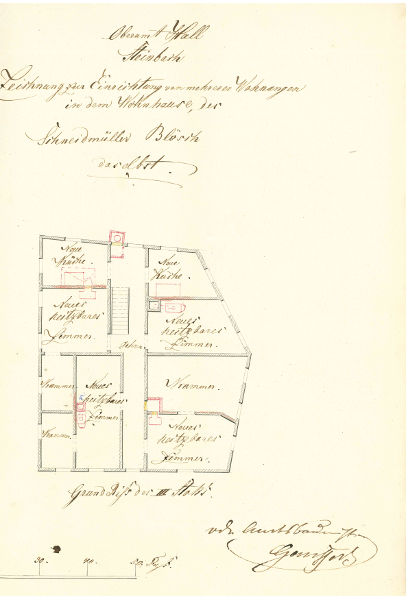 Oberamt Hall
Steinbach
Zeichnung zur Einrichtung von mehreren Wohnungen
in dem Wohnhause, des
Schneidmüller Blösch
daselbst.
Neue
Küche.
Neue
Küche.
Neues
heitzbares
Zimmer.
Neues
heitzbares
Zimmer.
Kammer
Neues
heitzbares
Zimmer.
Kammer.
Kamm.
Neues
heitzbares
Zimmer.
Grund Riß des III Stoks.
30. 40. 50